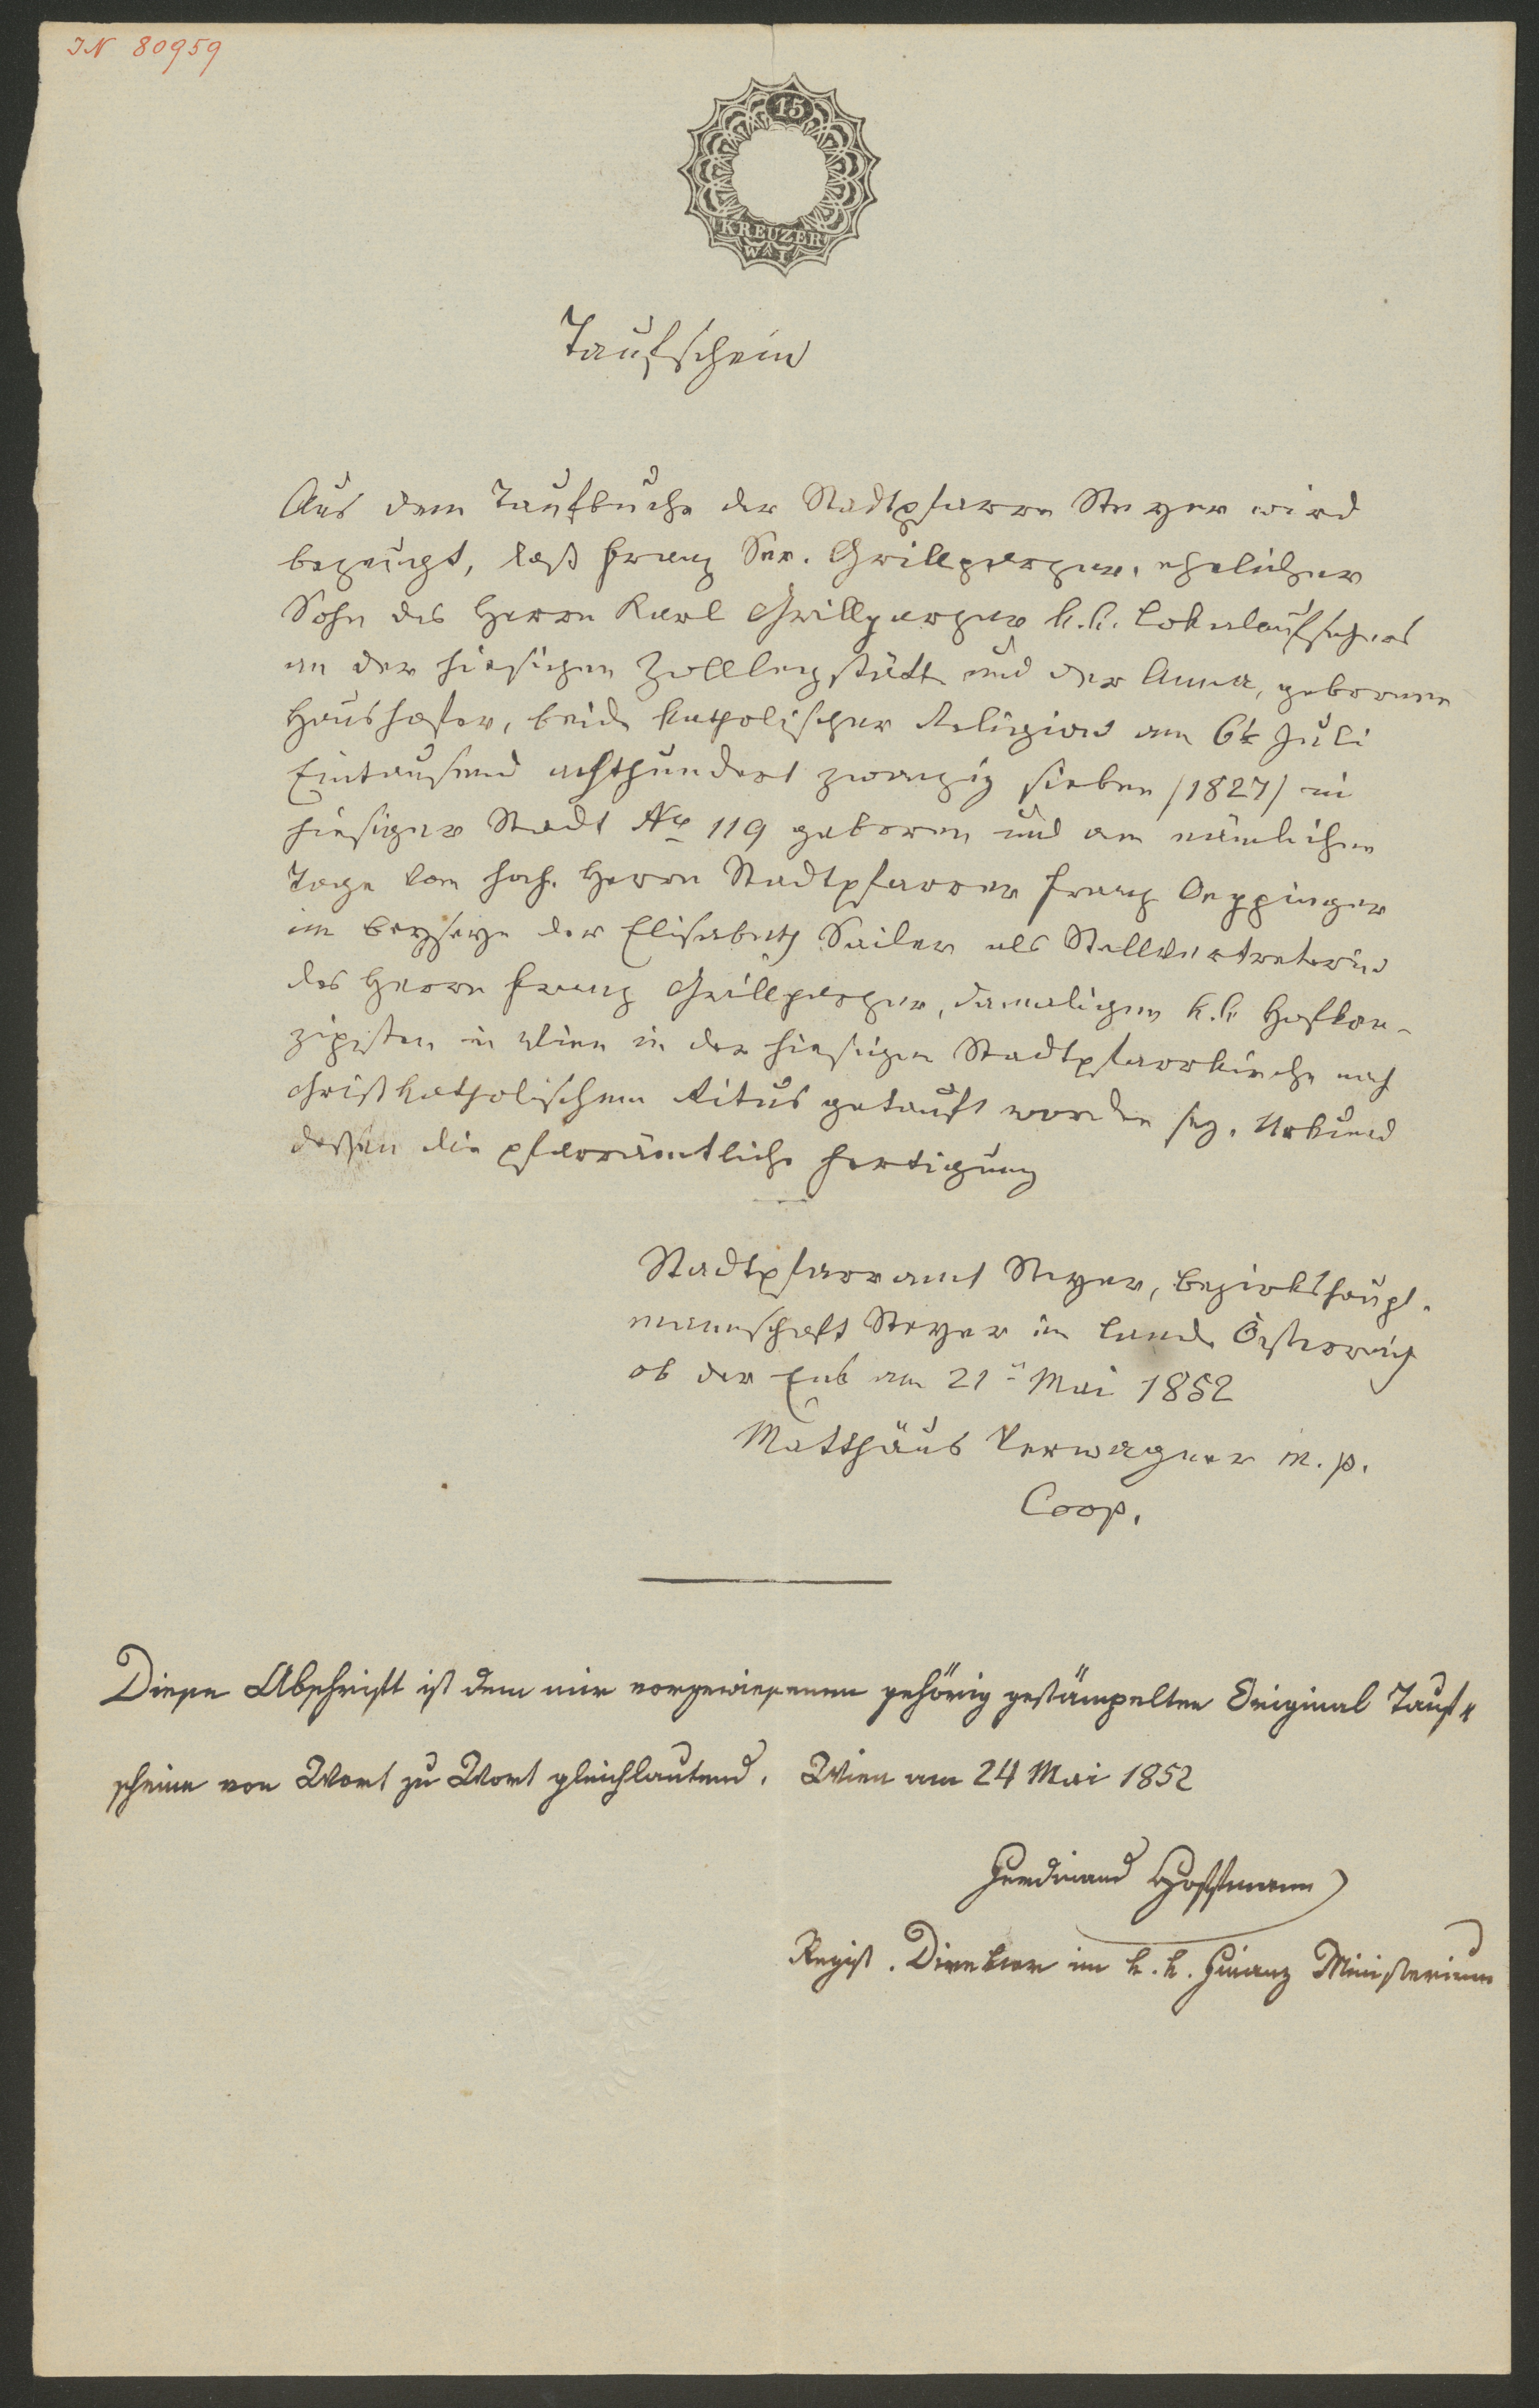 IN 80959
15
KREUZER
W A I
Taufschein
Aus dem Taufbuche der Stadtpfarre Steyer wird
bezeugt, daß Franz Ser. Grillparzer, ehelicher
Sohn des Herrn Karl Grillparzer k.k. Lokalaufsehers
an der hiesigen Zolllegstätte und der Anna, gebornen
Haushofer, beide katholischer Religion am 6t Juli
Eintausend achthundert zwanzig sieben /1827/ in
hiesiger Stadt No 119 geboren und am nämlichen
Tage vom hoch. Herrn Stadtpfarrer Franz Oeppinger
im Beyseyn der Elisabeth Sailer als Stellvertreterin
des Herrn Franz Grillparzer, damaligen k.k. Hofkon-
zipisten in Wien in der hiesigen Stadtpfarrkirche nach
christkatholischem Ritus getauft worden sey. Urkund
dessen die pfarrämtliche Fertigung
Stadtpfarramt Steyer, Bezirkshaupt-
mannschaft Steyer im Lande Österreich
ob der Enß am 21t Mai 1852
Matthäus Verwagner m. p.
Coop.
Diese Abschrift ist dem mir vorgewiesenen gehörig gestämpelten Original Tauf=
scheine von Wort zu Wort gleichlautend. Wien am 24 Mai 1852
Ferdinand Hoffmann
Regist. Direktor im k. k. Finanz Ministerium